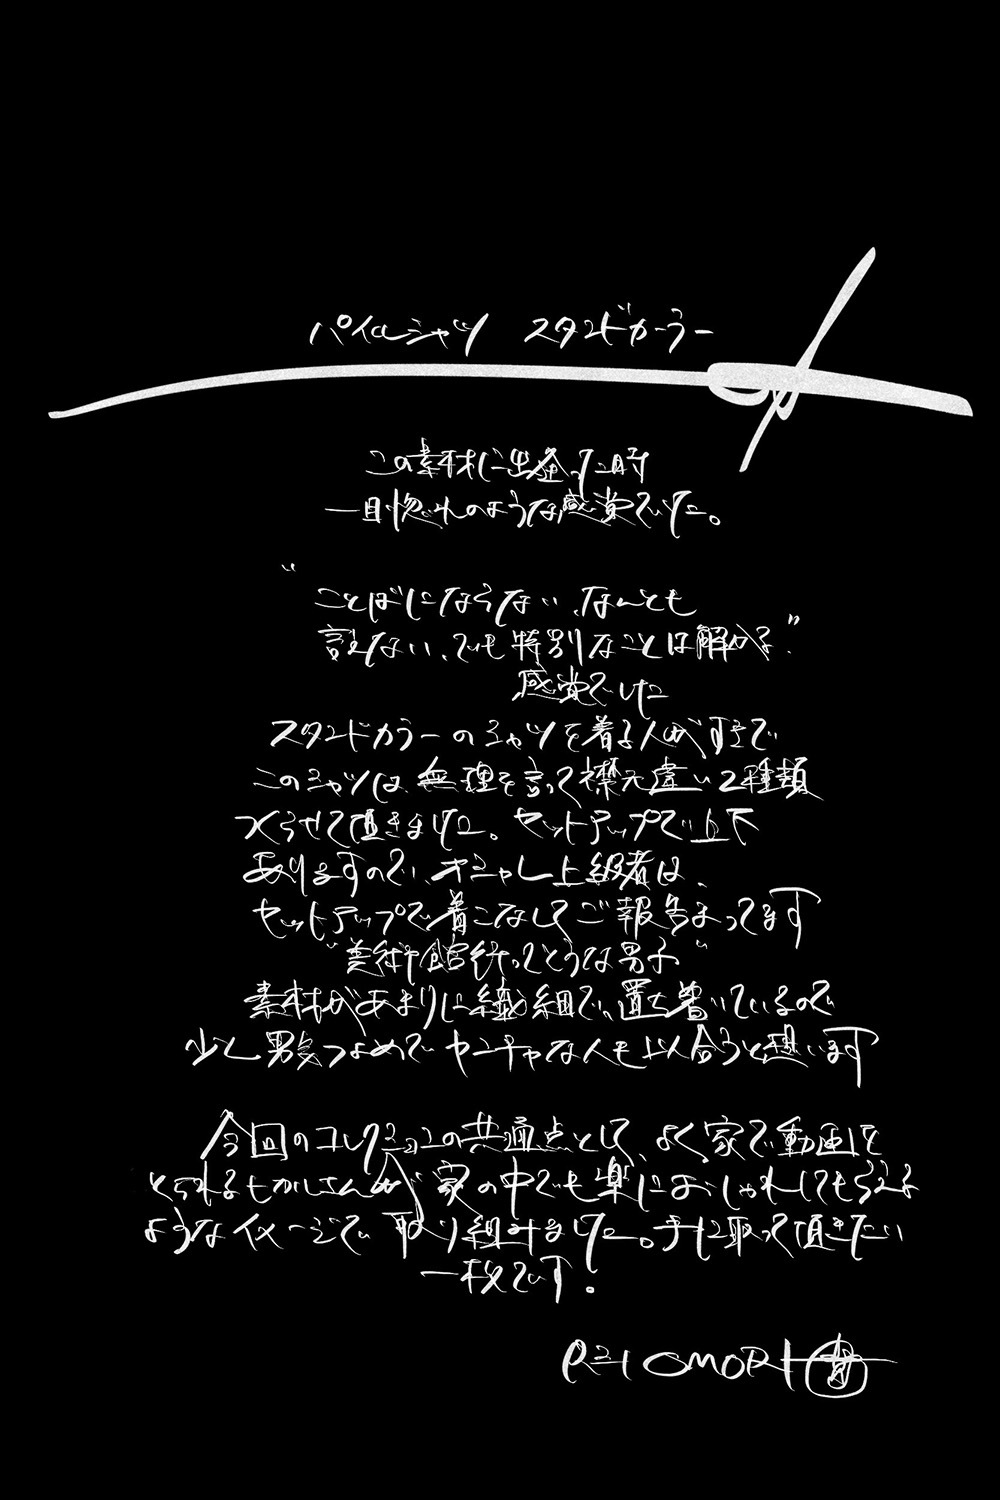 パイルシャツ スタンドカラー
この素材に出会った時
一目惚れのような感覚でした。
"ことばにならない、なんとも
言えない、でも特別なことは解かる"
感覚でした
スタンドカラーのシャツを着る人がすきで
このシャツは無理を言って襟元違い2種類
つくらせて頂きました。セットアップで上下
ありますので、オシャレ上級者は、
セットアップで着こなしてご報告まってます
"美術館行ってそうな男子"
素材があまりに繊細で、落ち着いているので
少し男気つよめでヤンチャな人も似合うと思います
今回のコレクションの共通点として、よく家で動画を
とられるもかしさんが家の中でも楽におしゃれしてもらえる
ようなイメージで取り組みました。手に取って頂きたい
一枚です!
OMORI